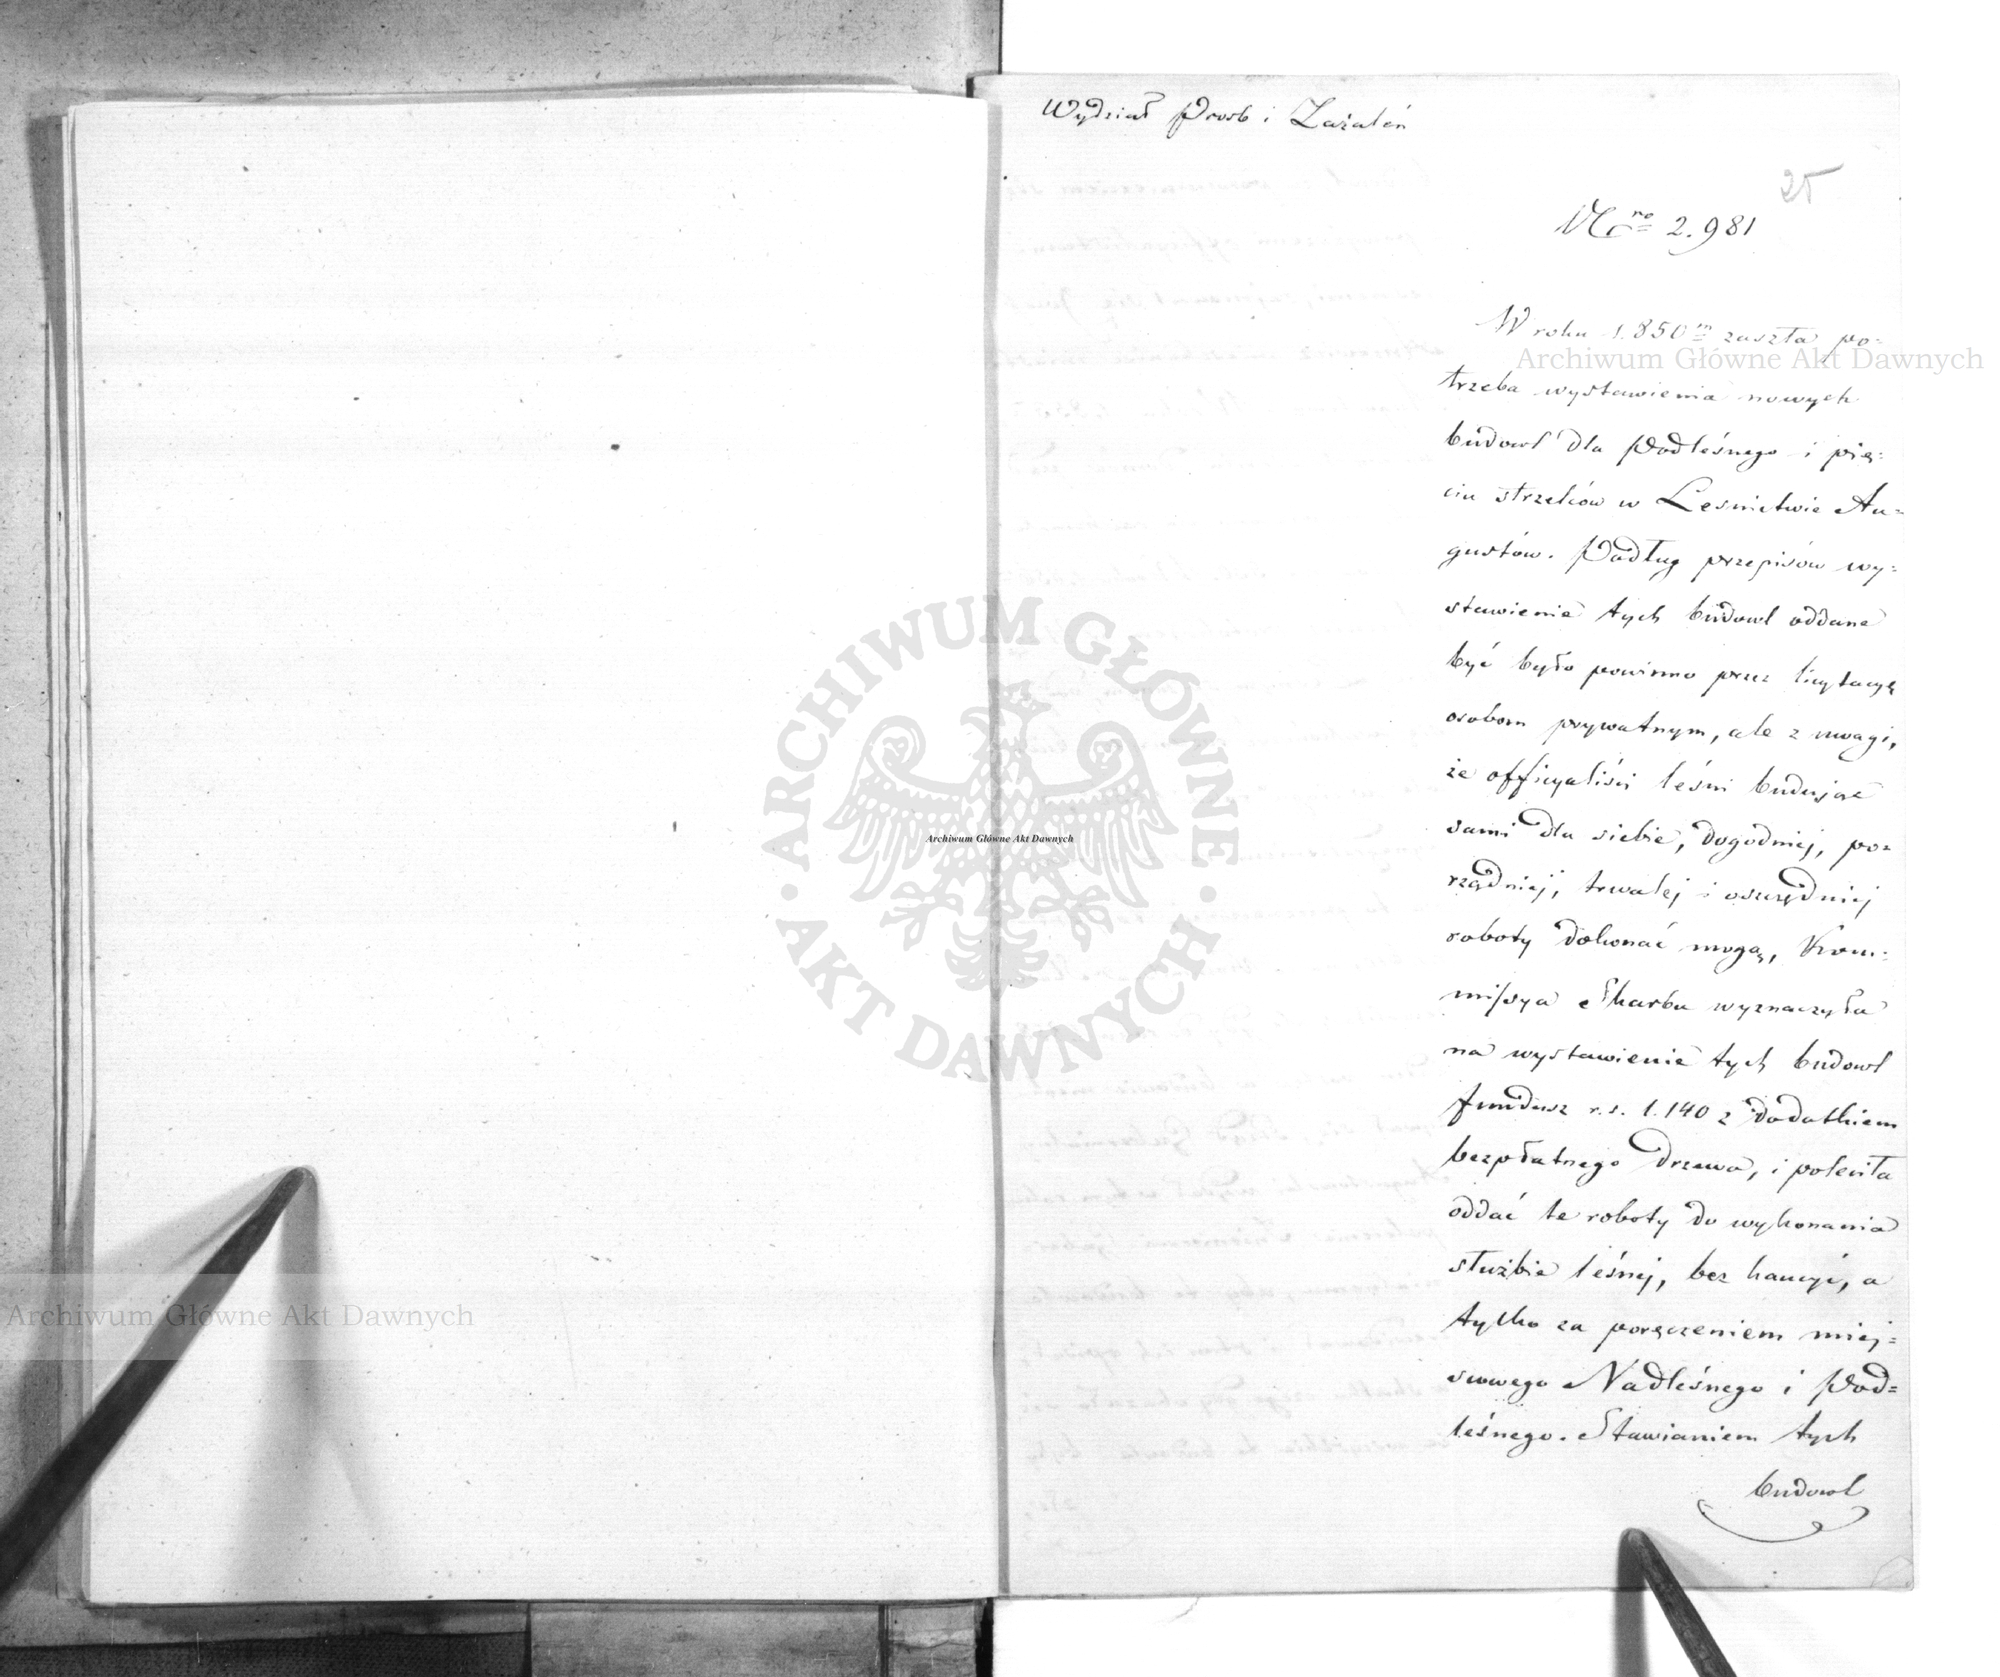 Wydział Prosb i Zażaleń
25
Nr ro 2.981
W roku 1.850 m zaszła po-
Archiwum Główne Akt Dawnych
trzeba wystawienia nowych
budowl dla Podleśnego i pię-
ciu strzelców w Leśnictwie Au-
gustów. Podług przepisów wy-
stawienie tych budowl oddane
być było powinno przez licytacyę
osobom prywatnym, ale z uwagi,
że officyaliści leśni budując
sami dla siebie, dogodniej, po-
rządniej, trwalej i oszczędniej
roboty dokonać mogą, Kom-
missya Skarbu wyznaczyła
na wystawienie tych budowl
fundusz r.s. 1.140 z dodatkiem
bezpłatnego drzewa, i poleciła
oddać te roboty do wykonania
służbie leśnej, bez kaucyi, a
tylko za poręczeniem miej-
scowego Nadleśnego i Pod-
leśnego. Stawianiem tych
budowl
ARCHIWUM GŁÓWNE AKT DAWNYCH
Archiwum Główne Akt Dawnych
Archiwum Główne Akt Dawnych